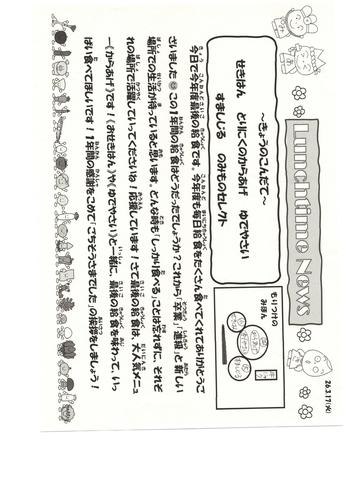 26.3.17(火)
Lunchtime News
～きょうのこんだて～
せきはん　とりにくのからあげ　ゆでやさい
すましじる　のみものセレクト
もりつけの
みほん
今日で今年度最後の給食です。今年度も毎日給食をたくさん食べてくれてありがとうご
ざいました☺この1年間の給食はどうだったでしょうか？これから「卒業」「進級」と新しい
場所での生活が待っていると思います。どんな時も「しっかり食べる」ことは忘れずに、それぞ
れの場所で活躍していってくださいね！応援しています！さて最後の給食は、大人気メニュ
ー《からあげ》です！《おせきはん》や《ゆでやさい》と一緒に、最後の給食を味わって、いっ
ぱい食べてほしいです！1年間の感謝をこめて「ごちそうさまでした」の挨拶をしましょう！